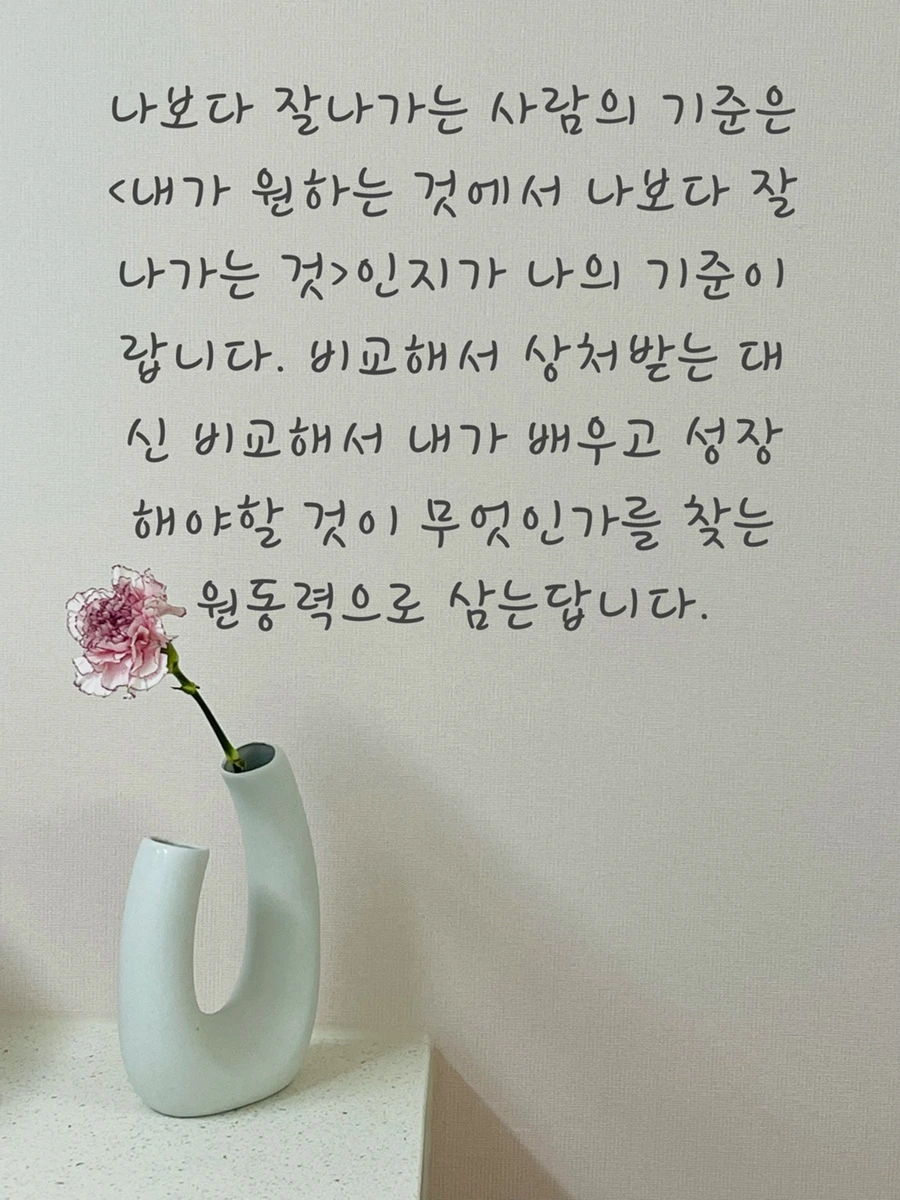 나보다 잘나가는 사람의 기준은
<내가 원하는 것에서 나보다 잘
나가는 것>인지가 나의 기준이
랍니다. 비교해서 상처받는 대
신 비교해서 내가 배우고 성장
해야할 것이 무엇인가를 찾는
원동력으로 삼는답니다.